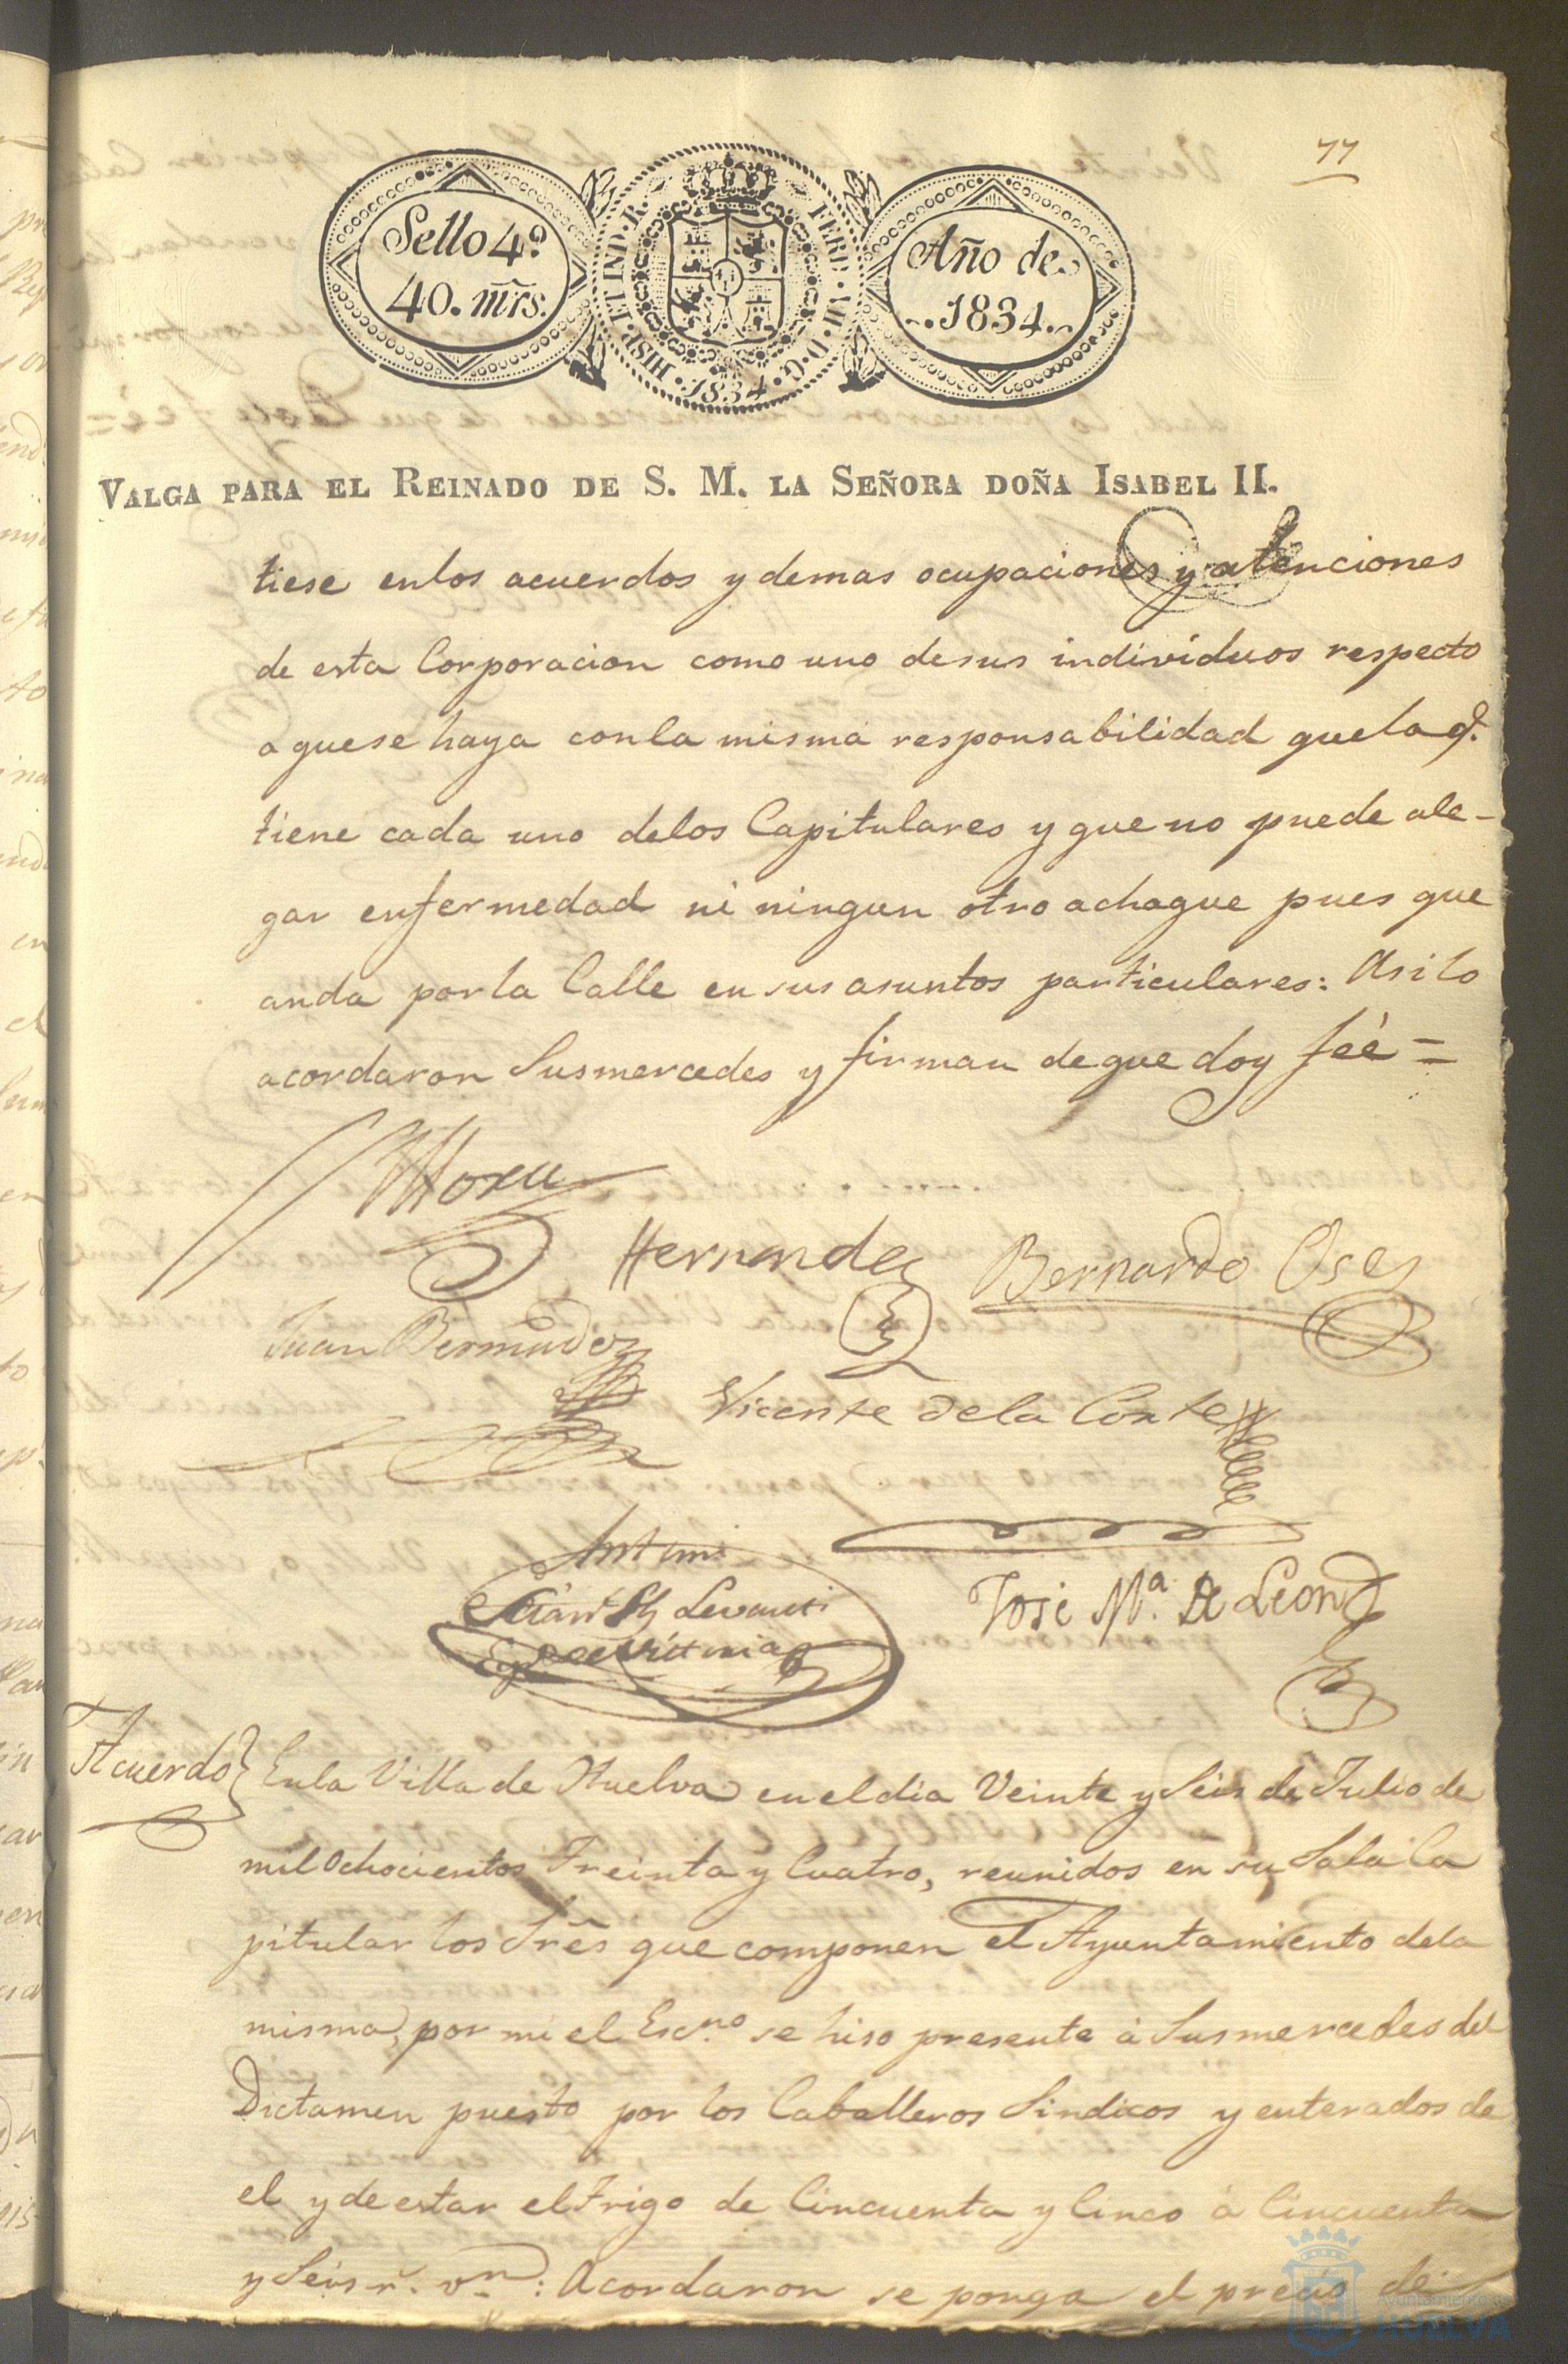 77
Sello 4º
40. mrs.
HISP. ET IND. R. FERD. VII. D. G. 1834.
Año de
1834.
VALGA PARA EL REINADO DE S. M. LA SEÑORA DOÑA ISABEL II.
tiese enlos acuerdos y demas ocupaciones y atenciones
de esta Corporacion como uno desus individuos respecto
a quese haya conla misma responsabilidad quela q.
tiene cada uno delos Capitulares y que no puede ale-
gar enfermedad ni ningun otro achaque pues que
anda porla Calle en sus asuntos particulares: Asi lo
acordaron Susmercedes y firman deque doy feé =
Mora
Hernandez Bernardo Oses
Juan Bermudez
Vicente dela Corte
Antoni
José Mª. De Leon
Acuerdo Enla Villa de Huelva eneldia Veinte y Seis de Julio de
mil Ochocientos Treinta y Cuatro, reunidos en su Sala Ca
pitular los Srēs que componen el Ayuntamiento dela
misma, por mi el Escno. se hiso presente á Susmercedes del
Dictamen puesto por los Caballeros Sindicos y enterados de
el y de estar el Trigo de Cincuenta y Cinco á Cincuenta
y Seis r. vn: Acordaron se ponga el precio de
Ayuntamiento de
HUELVA